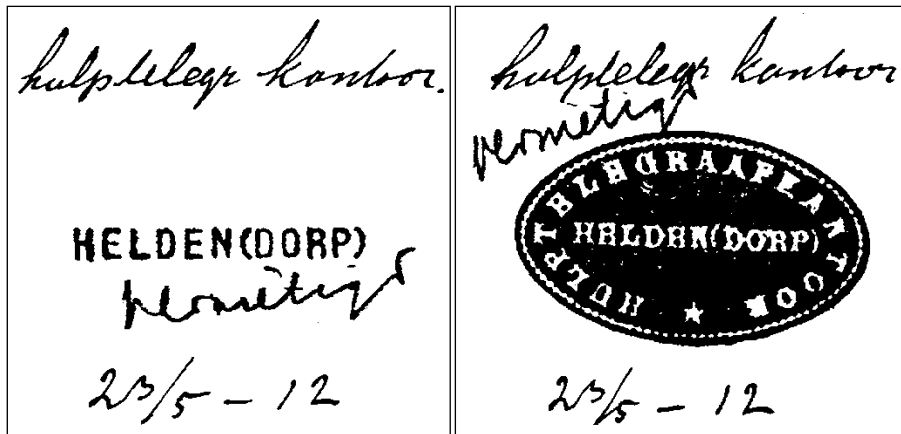 hulptelegr kantoor.
HELDEN(DORP)
vernietigd
23/5 - 12
hulptelegr kantoor
vernietigd
HULPTELEGRAAFKANTOOR
HELDEN(DORP)
23/5 - 12